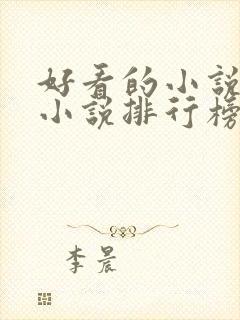 好看的小说
小说排行榜
李晨